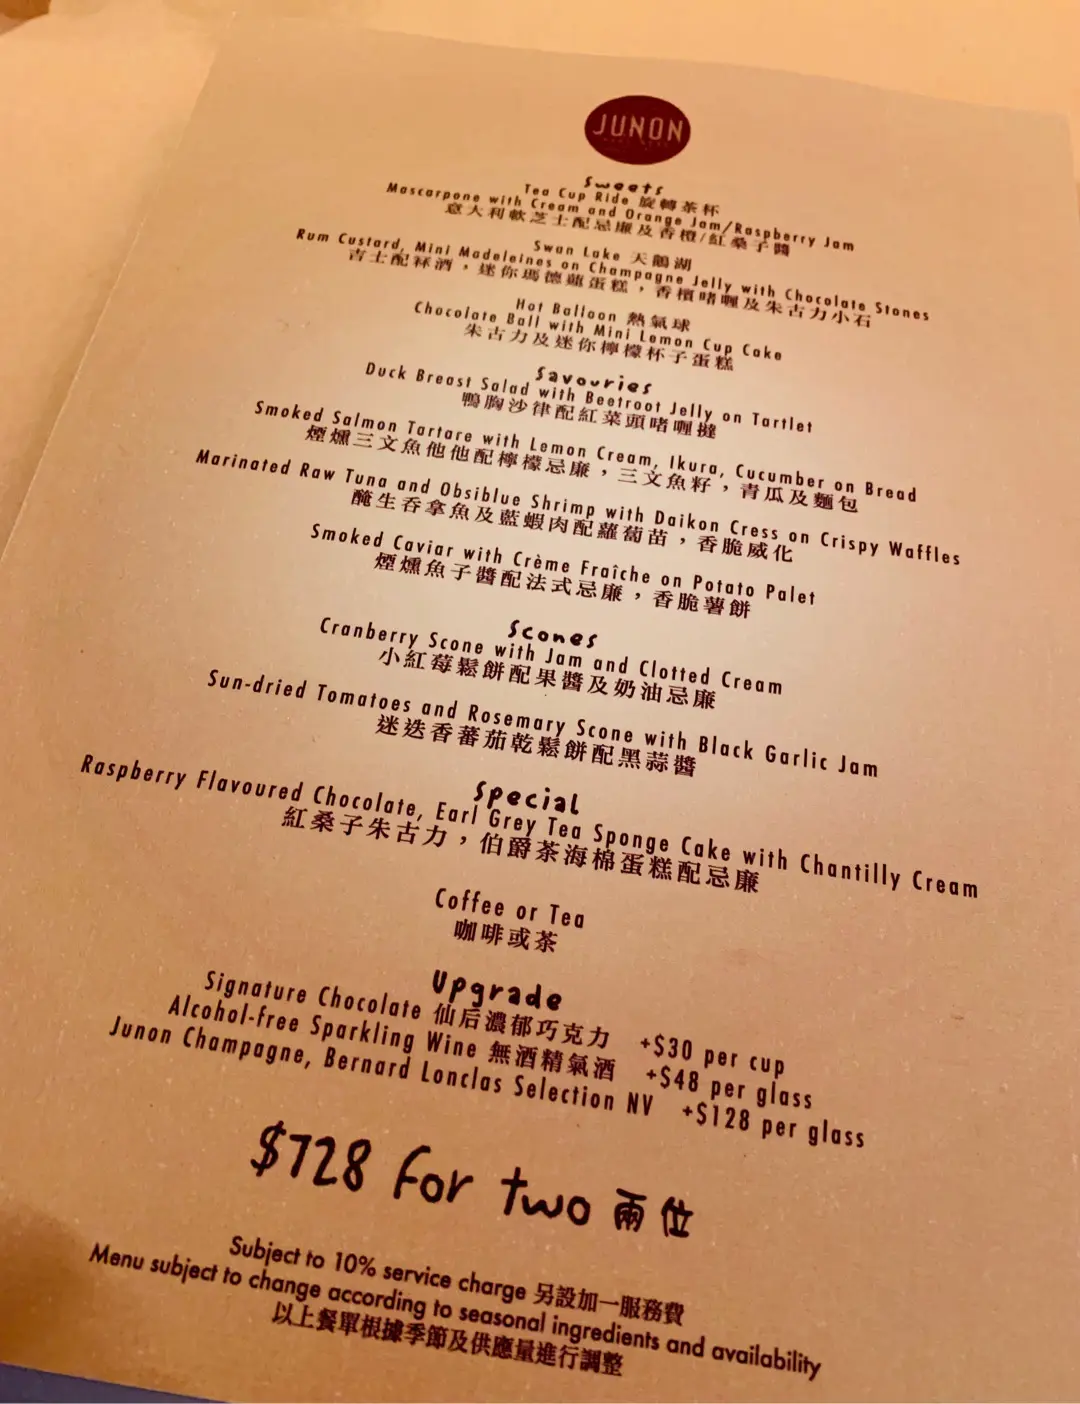 JUNON
Sweets
Tea Cup Ride 旋轉茶杯
Mascarpone with Cream and Orange Jam/Raspberry Jam
意大利軟芝士配忌廉及香橙/紅桑子醬
Swan Lake 天鵝湖
Rum Custard, Mini Madeleines on Champagne Jelly with Chocolate Stones
吉士配冧酒，迷你瑪德蓮蛋糕，香檳啫喱及朱古力小石
Hot Balloon 熱氣球
Chocolate Ball with Mini Lemon Cup Cake
朱古力及迷你檸檬杯子蛋糕
Savouries
Duck Breast Salad with Beetroot Jelly on Tartlet
鴨胸沙律配紅菜頭啫喱撻
Smoked Salmon Tartare with Lemon Cream, Ikura, Cucumber on Bread
煙燻三文魚他他配檸檬忌廉，三文魚籽，青瓜及麵包
Marinated Raw Tuna and Obsiblue Shrimp with Daikon Cress on Crispy Waffles
醃生吞拿魚及藍蝦肉配蘿蔔苗，香脆威化
Smoked Caviar with Crème Fraîche on Potato Palet
煙燻魚子醬配法式忌廉，香脆薯餅
Scones
Cranberry Scone with Jam and Clotted Cream
小紅莓鬆餅配果醬及奶油忌廉
Sun-dried Tomatoes and Rosemary Scone with Black Garlic Jam
迷迭香蕃茄乾鬆餅配黑蒜醬
Special
Raspberry Flavoured Chocolate, Earl Grey Tea Sponge Cake with Chantilly Cream
紅桑子朱古力，伯爵茶海棉蛋糕配忌廉
Coffee or Tea
咖啡或茶
Upgrade
Signature Chocolate 仙后濃郁巧克力 +$30 per cup
Alcohol-free Sparkling Wine 無酒精氣酒 +$48 per glass
Junon Champagne, Bernard Lonclas Selection NV +$128 per glass
$728 for two 兩位
Subject to 10% service charge 另設加一服務費
Menu subject to change according to seasonal ingredients and availability
以上餐單根據季節及供應量進行調整